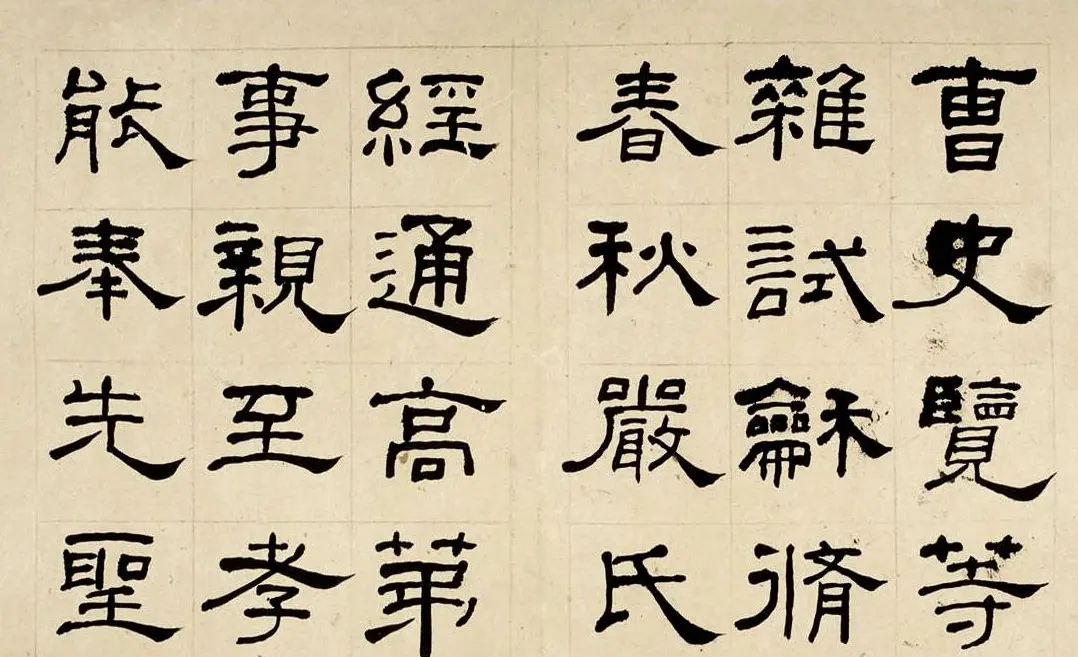 曹史覽等
雜試龢脩
春秋嚴氏
經通高第
事親至孝
能奉先聖